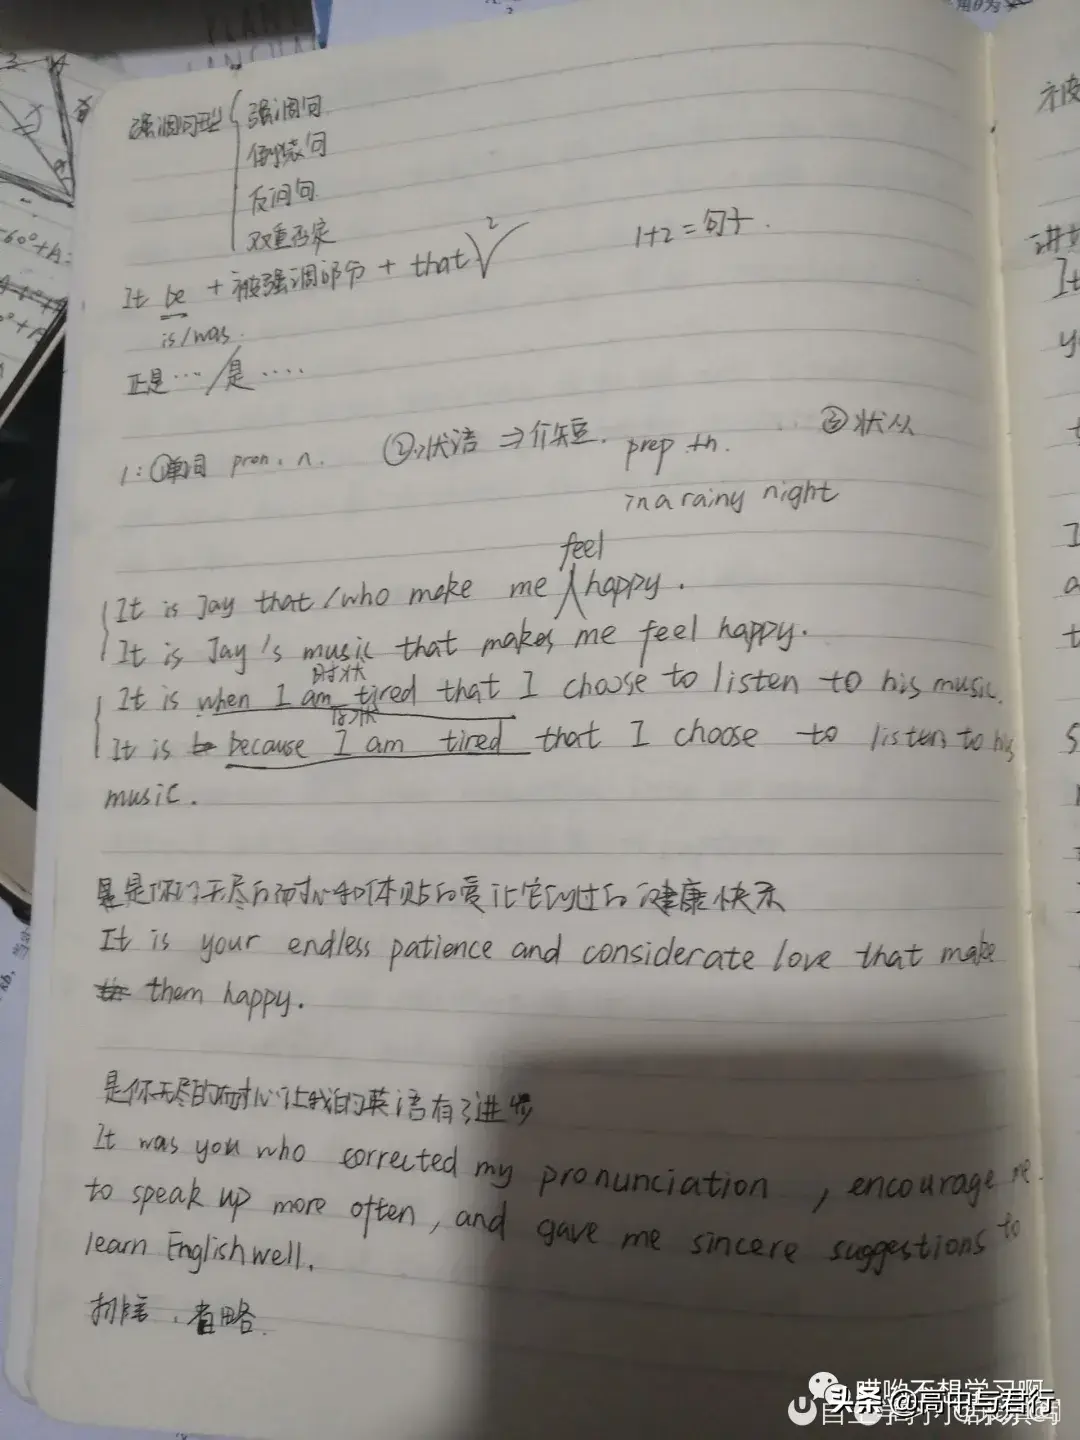 强调句型 强调句
倒装句
反问句
双重否定
It be + 被强调部分 + that √ 2 1+2=句子.
is/was.
正是…/是….
1:①单词 pron. n. ②状语 ⇒介短. prep +n. ③状从
in a rainy night
feel
It is Jay that/who make me happy.
It is Jay's music that makes me feel happy.
时状
It is when I am tired that I choose to listen to his music.
原状
It is because I am tired that I choose to listen to his
music.
是你们无尽的耐心和体贴的爱让它们过的健康快乐
It is your endless patience and considerate love that make
them happy.
是你无尽的耐心让我的英语有了进步
It was you who corrected my pronunciation, encourage me
to speak up more often, and gave me sincere suggestions to
learn English well.
排比、省略.
哎哟不想学习啊
头条 @高中与君行